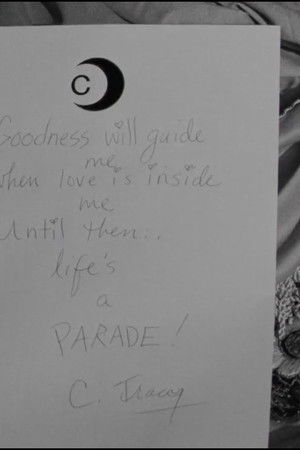 C
Goodness will guide
me
when love is inside
me
Until then...
life's
a
PARADE!
C. Tracy